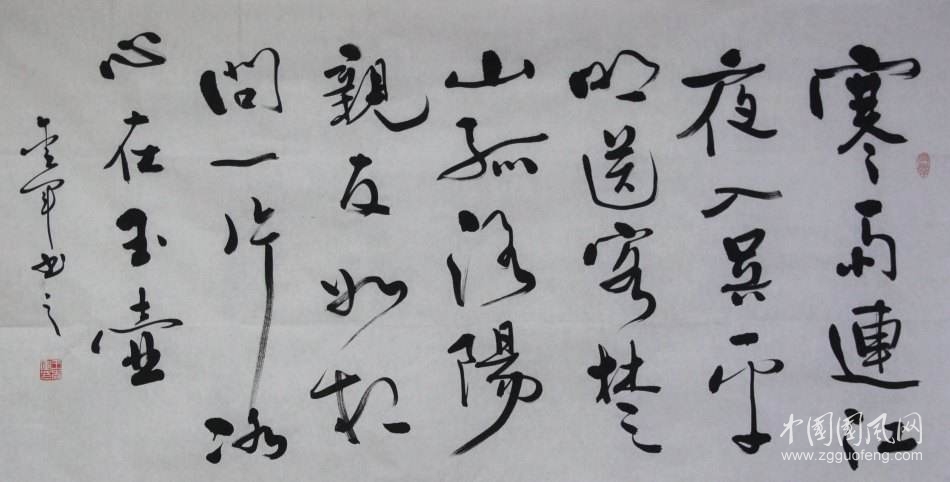 寒雨連江
夜入吳平
明送客楚
山孤洛陽
親友如相
問一片冰
心在玉壺
軍書之
中国国风网
www.zgguofeng.com